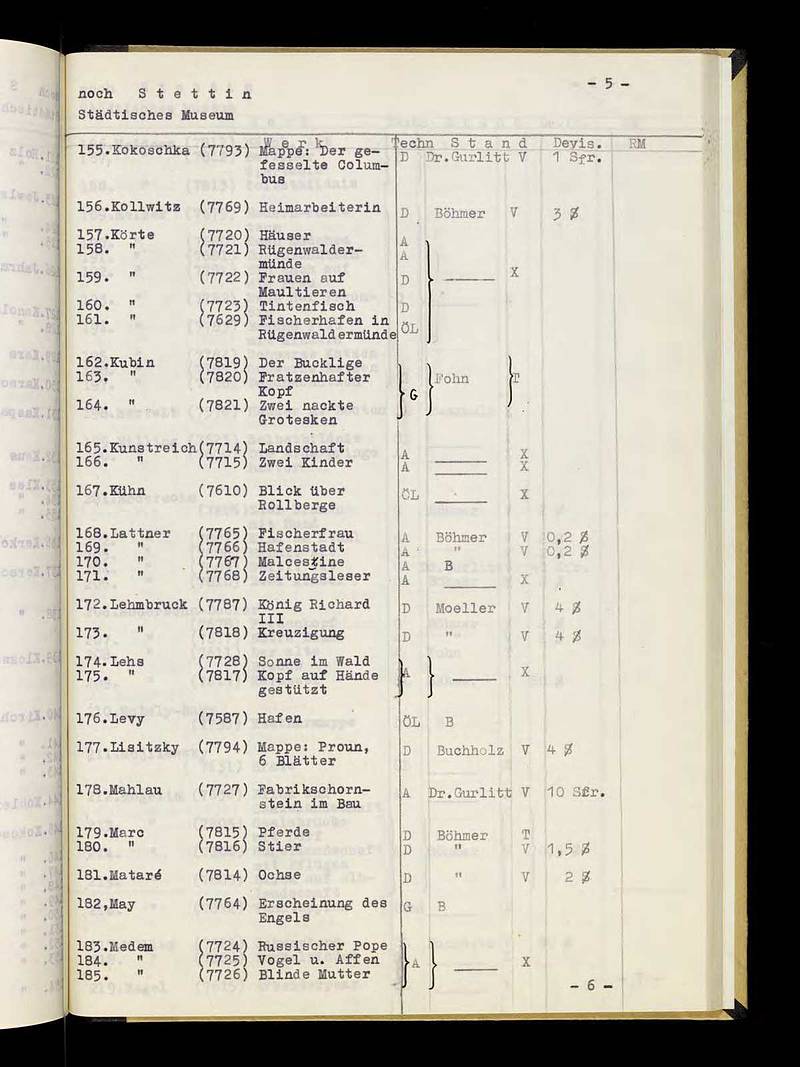 - 5 -
noch S t e t t i n
Städtisches Museum
W e r k Techn S t a n d Devis. RM
155.Kokoschka (7793) Mappe: Der ge- D Dr.Gurlitt V 1 Sfr.
fesselte Colum-
bus
156.Kollwitz (7769) Heimarbeiterin D Böhmer V 3 $
157.Körte (7720) Häuser A
158. " (7721) Rügenwalder- A
münde X
159. " (7722) Frauen auf D
Maultieren
160. " (7723) Tintenfisch D
161. " (7629) Fischerhafen in ÖL
Rügenwaldermünde
162.Kubin (7819) Der Bucklige
163. " (7820) Fratzenhafter G Fohn T
Kopf
164. " (7821) Zwei nackte
Grotesken
165.Kunstreich(7714) Landschaft A X
166. " (7715) Zwei Kinder A X
167.Kühn (7610) Blick über ÖL X
Rollberge
168.Lattner (7765) Fischerfrau A Böhmer V 0,2 $
169. " (7766) Hafenstadt A " V 0,2 $
170. " (7767) Malcesine A B
171. " (7768) Zeitungsleser A X
172.Lehmbruck (7787) König Richard D Moeller V 4 $
III
173. " (7818) Kreuzigung D " V 4 $
174.Lehs (7728) Sonne im Wald
175. " (7817) Kopf auf Hände A X
gestützt
176.Levy (7587) Hafen ÖL B
177.Lisitzky (7794) Mappe: Proun, D Buchholz V 4 $
6 Blätter
178.Mahlau (7727) Fabrikschorn- A Dr.Gurlitt V 10 Sfr.
stein im Bau
179.Marc (7815) Pferde D Böhmer T
180. " (7816) Stier D " V 1,5 $
181.Mataré (7814) Ochse D " V 2 $
182,May (7764) Erscheinung des G B
Engels
183.Medem (7724) Russischer Pope
184. " (7725) Vogel u. Affen A X
185. " (7726) Blinde Mutter
- 6 -